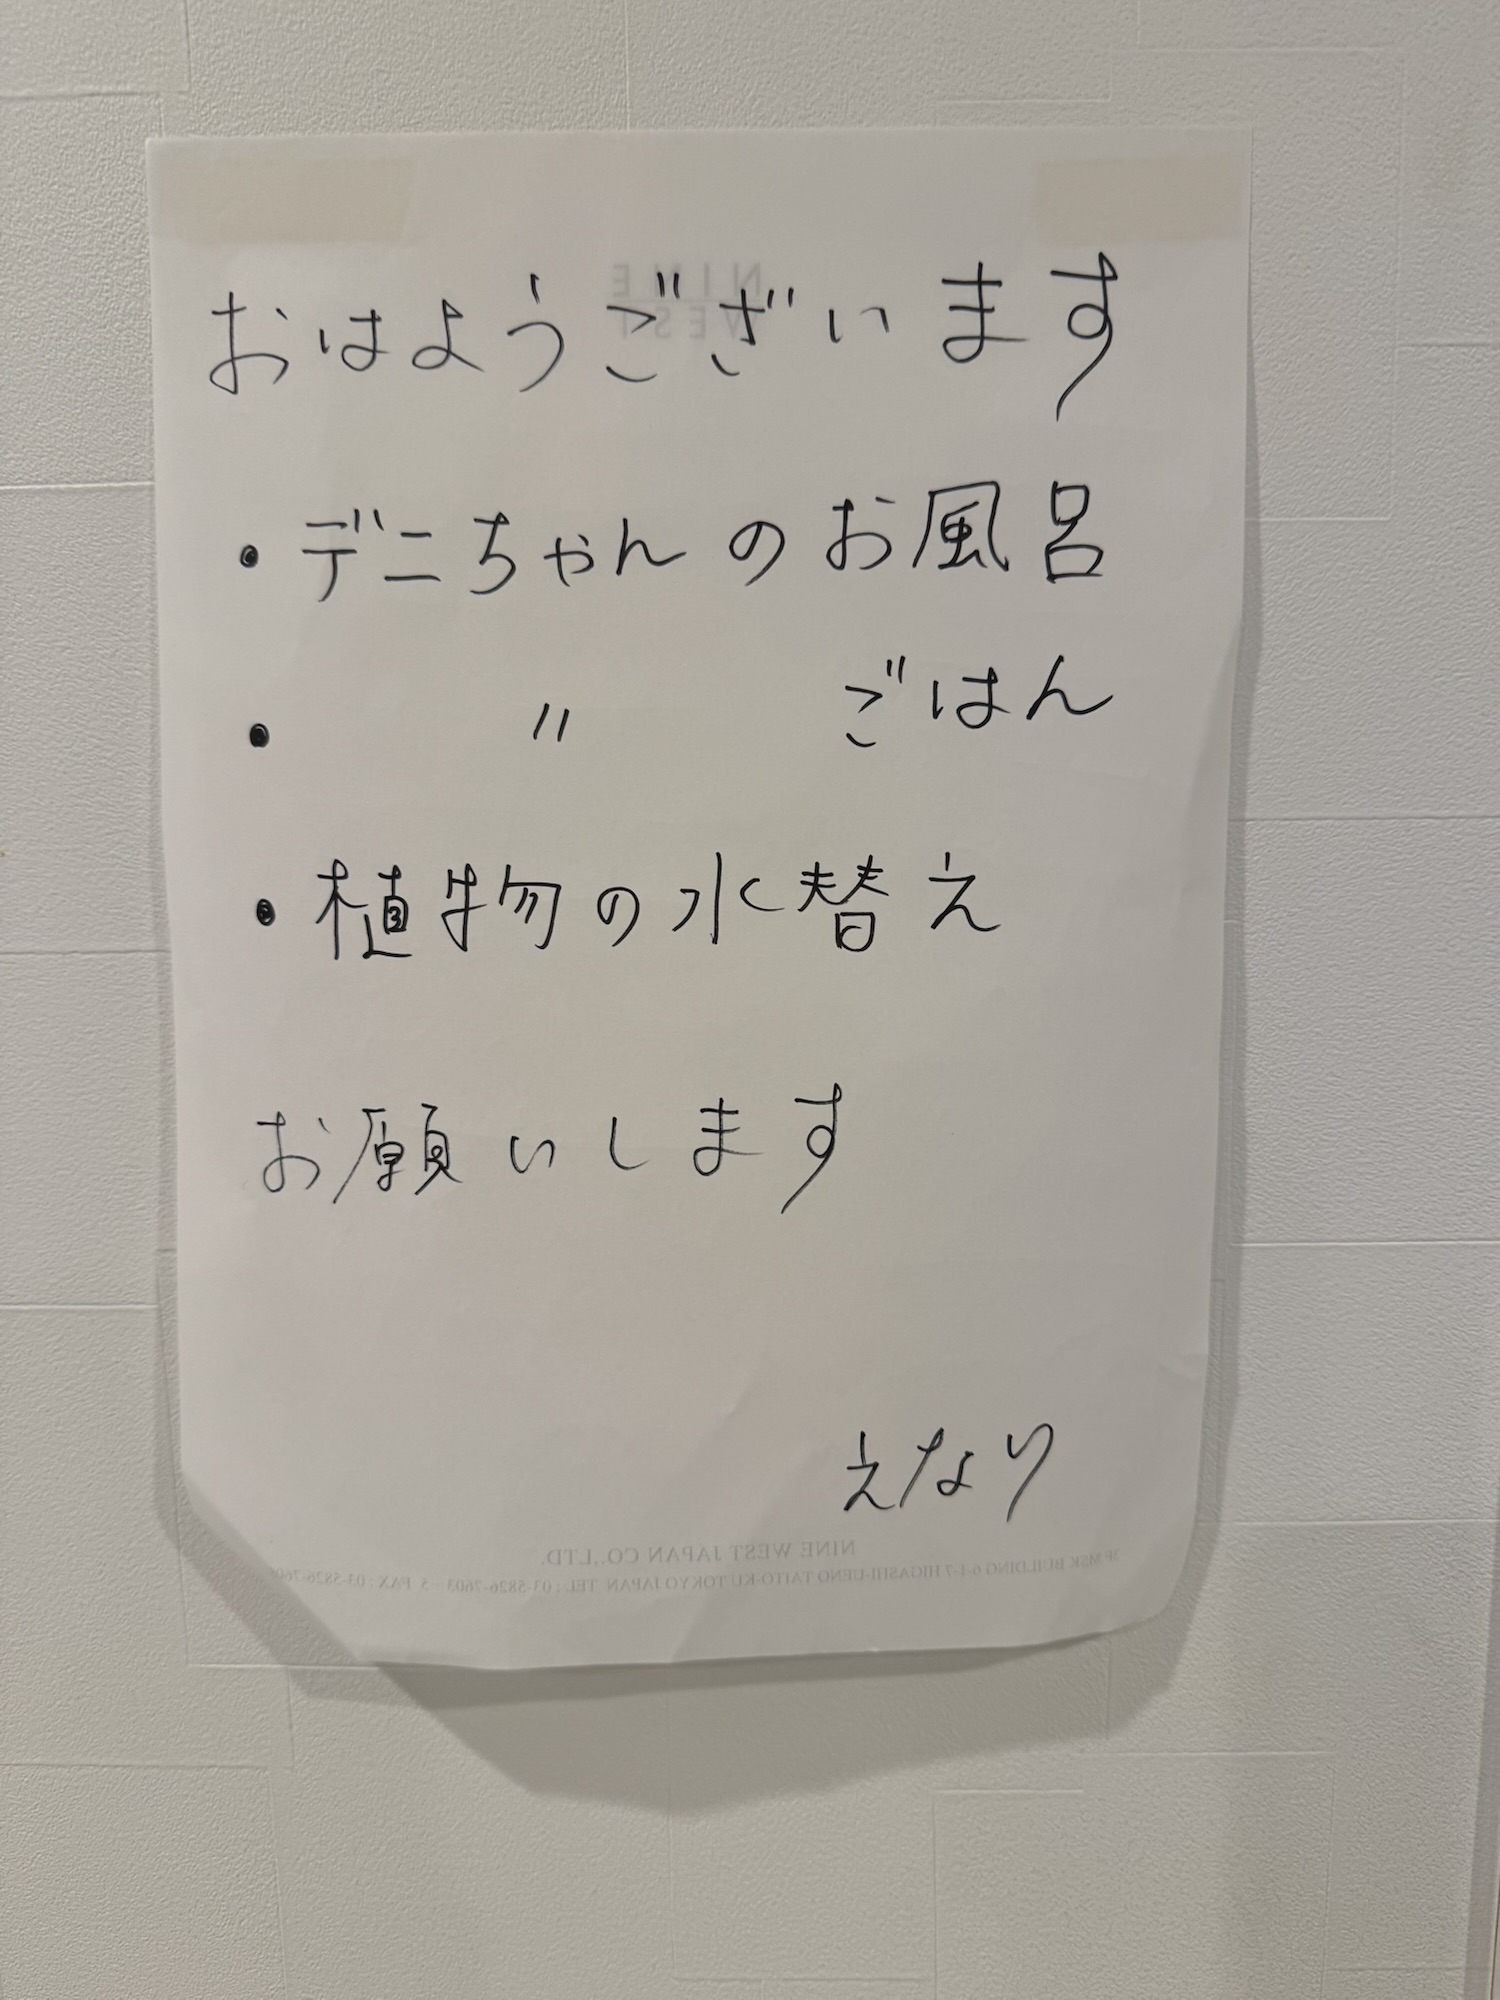 NINE
WEST
おはようございます
・デニちゃんのお風呂
・ 〃 ごはん
・植物の水替え
お願いします
えなり
NINE WEST JAPAN CO.,LTD.
MSK BUILDING 6-1-7 HIGASHI-UENO TAITO-KU TOKYO JAPAN TEL : 03-5826-7603 FAX : 03-5826-